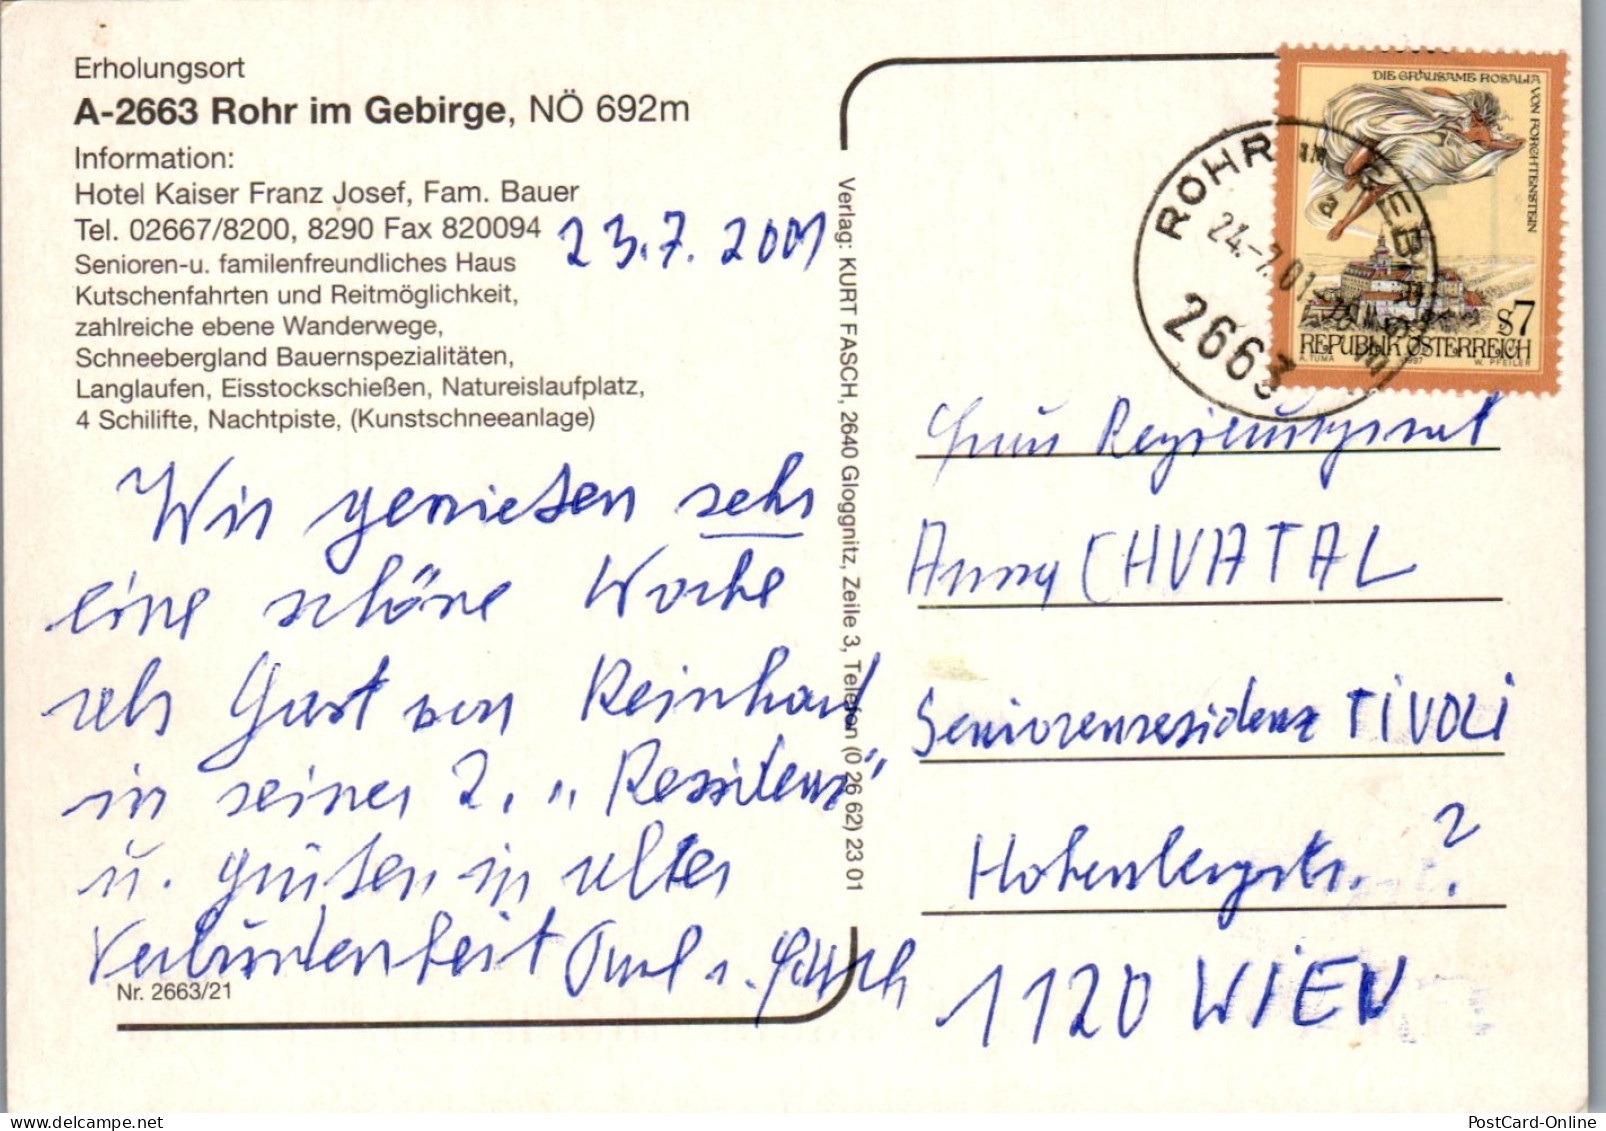 Erholungsort
A-2663 Rohr im Gebirge, NÖ 692m
Information:
Hotel Kaiser Franz Josef, Fam. Bauer
Tel. 02667/8200, 8290 Fax 820094
Senioren-u. familenfreundliches Haus
Kutschenfahrten und Reitmöglichkeit,
zahlreiche ebene Wanderwege,
Schneebergland Bauernspezialitäten,
Langlaufen, Eisstockschießen, Natureislaufplatz,
4 Schilifte, Nachtpiste, (Kunstschneeanlage)
23.7.2001
Wir genießen sehr
eine schöne Woche
als Gast von Reinhard
in seiner 2. „Residenz"
u. grüßen in alter
Verbundenheit
Nr. 2663/21
Verlag: KURT FASCH, 2640 Gloggnitz, Zeile 3, Telefon (0 26 62) 23 01
DIE GRAUSAME ROSALIA
VON FORCHTENSTEIN
S7
REPUBLIK ÖSTERREICH
A. TUMA 1997 W. PFEILER
ROHR IM GEBIRGE
a
24.-7.01
2663
Frau Regierungsrat
Anny CHVATAL
Seniorenresidenz TIVOLI
Hohenbergstr. ?
1120 WIEN
PostCard-Online